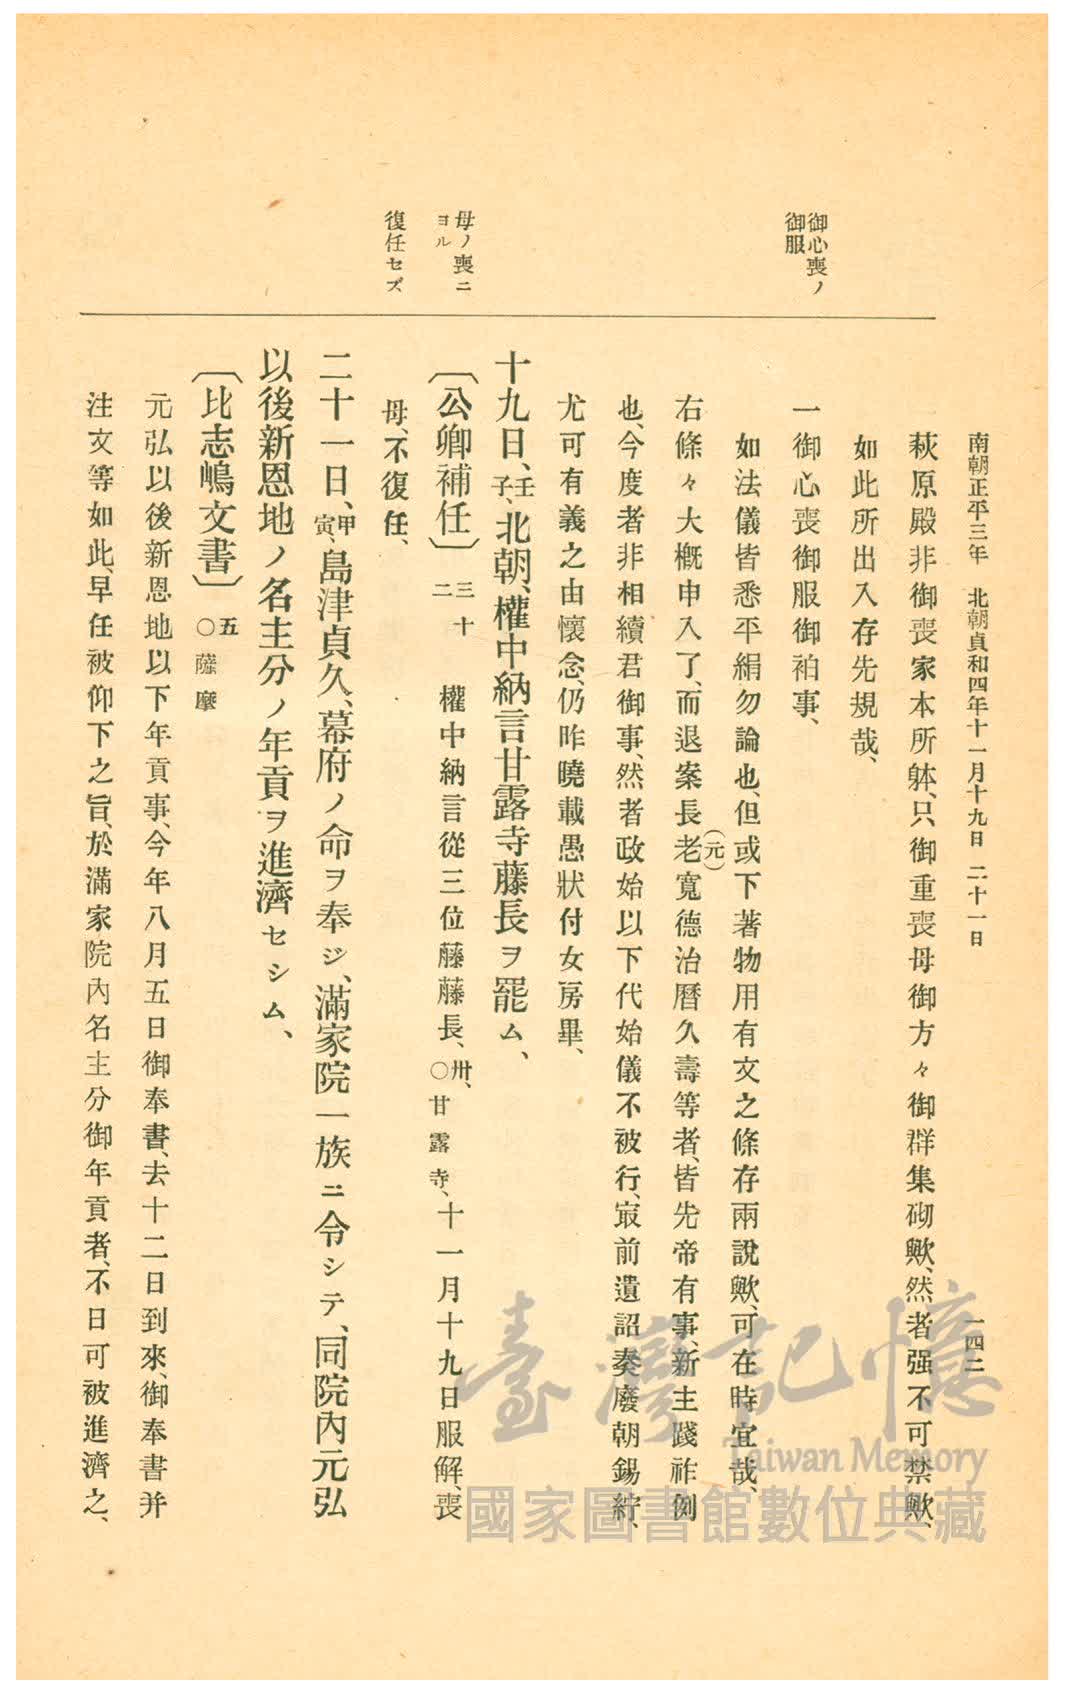 南朝正平三年　北朝貞和四年十一月十九日　二十一日
一四二
御心喪ノ
御服
母ノ喪ニ
ヨル
復任セズ
萩原殿非御喪家本所躰、只御重喪母御方々御群集砌歟、然者强不可禁歟、
如此所出入存先規哉、
一御心喪御服御袙事、
如法儀皆悉平絹勿論也、但或下著物用有文之條存兩說歟、可在時宜哉、
右條々大槪申入了、而退案長老(元)寬德治曆久壽等者、皆先帝有事、新主踐祚例
也、今度者非相續君御事、然者政始以下代始儀不被行、㝡前遺詔奏廢朝錫紵、
尤可有義之由懷念、仍昨曉載愚狀付女房畢、
十九日、壬子、北朝、權中納言甘露寺藤長ヲ罷ム、
〔公卿補任〕三十二　權中納言從三位藤藤長、卅、○甘露寺、十一月十九日服解、喪
母、不復任、
二十一日、甲寅、島津貞久、幕府ノ命ヲ奉ジ、滿家院一族ニ令シテ、同院內元弘
以後新恩地ノ名主分ノ年貢ヲ進濟セシム、
〔比志嶋文書〕五○薩摩
元弘以後新恩地以下年貢事、今年八月五日御奉書、去十二日到來、御奉書幷
注文等如此、早任被仰下之旨、於滿家院內名主分御年貢者、不日可被進濟之、
臺灣記憶
Taiwan Memory
國家圖書館數位典藏